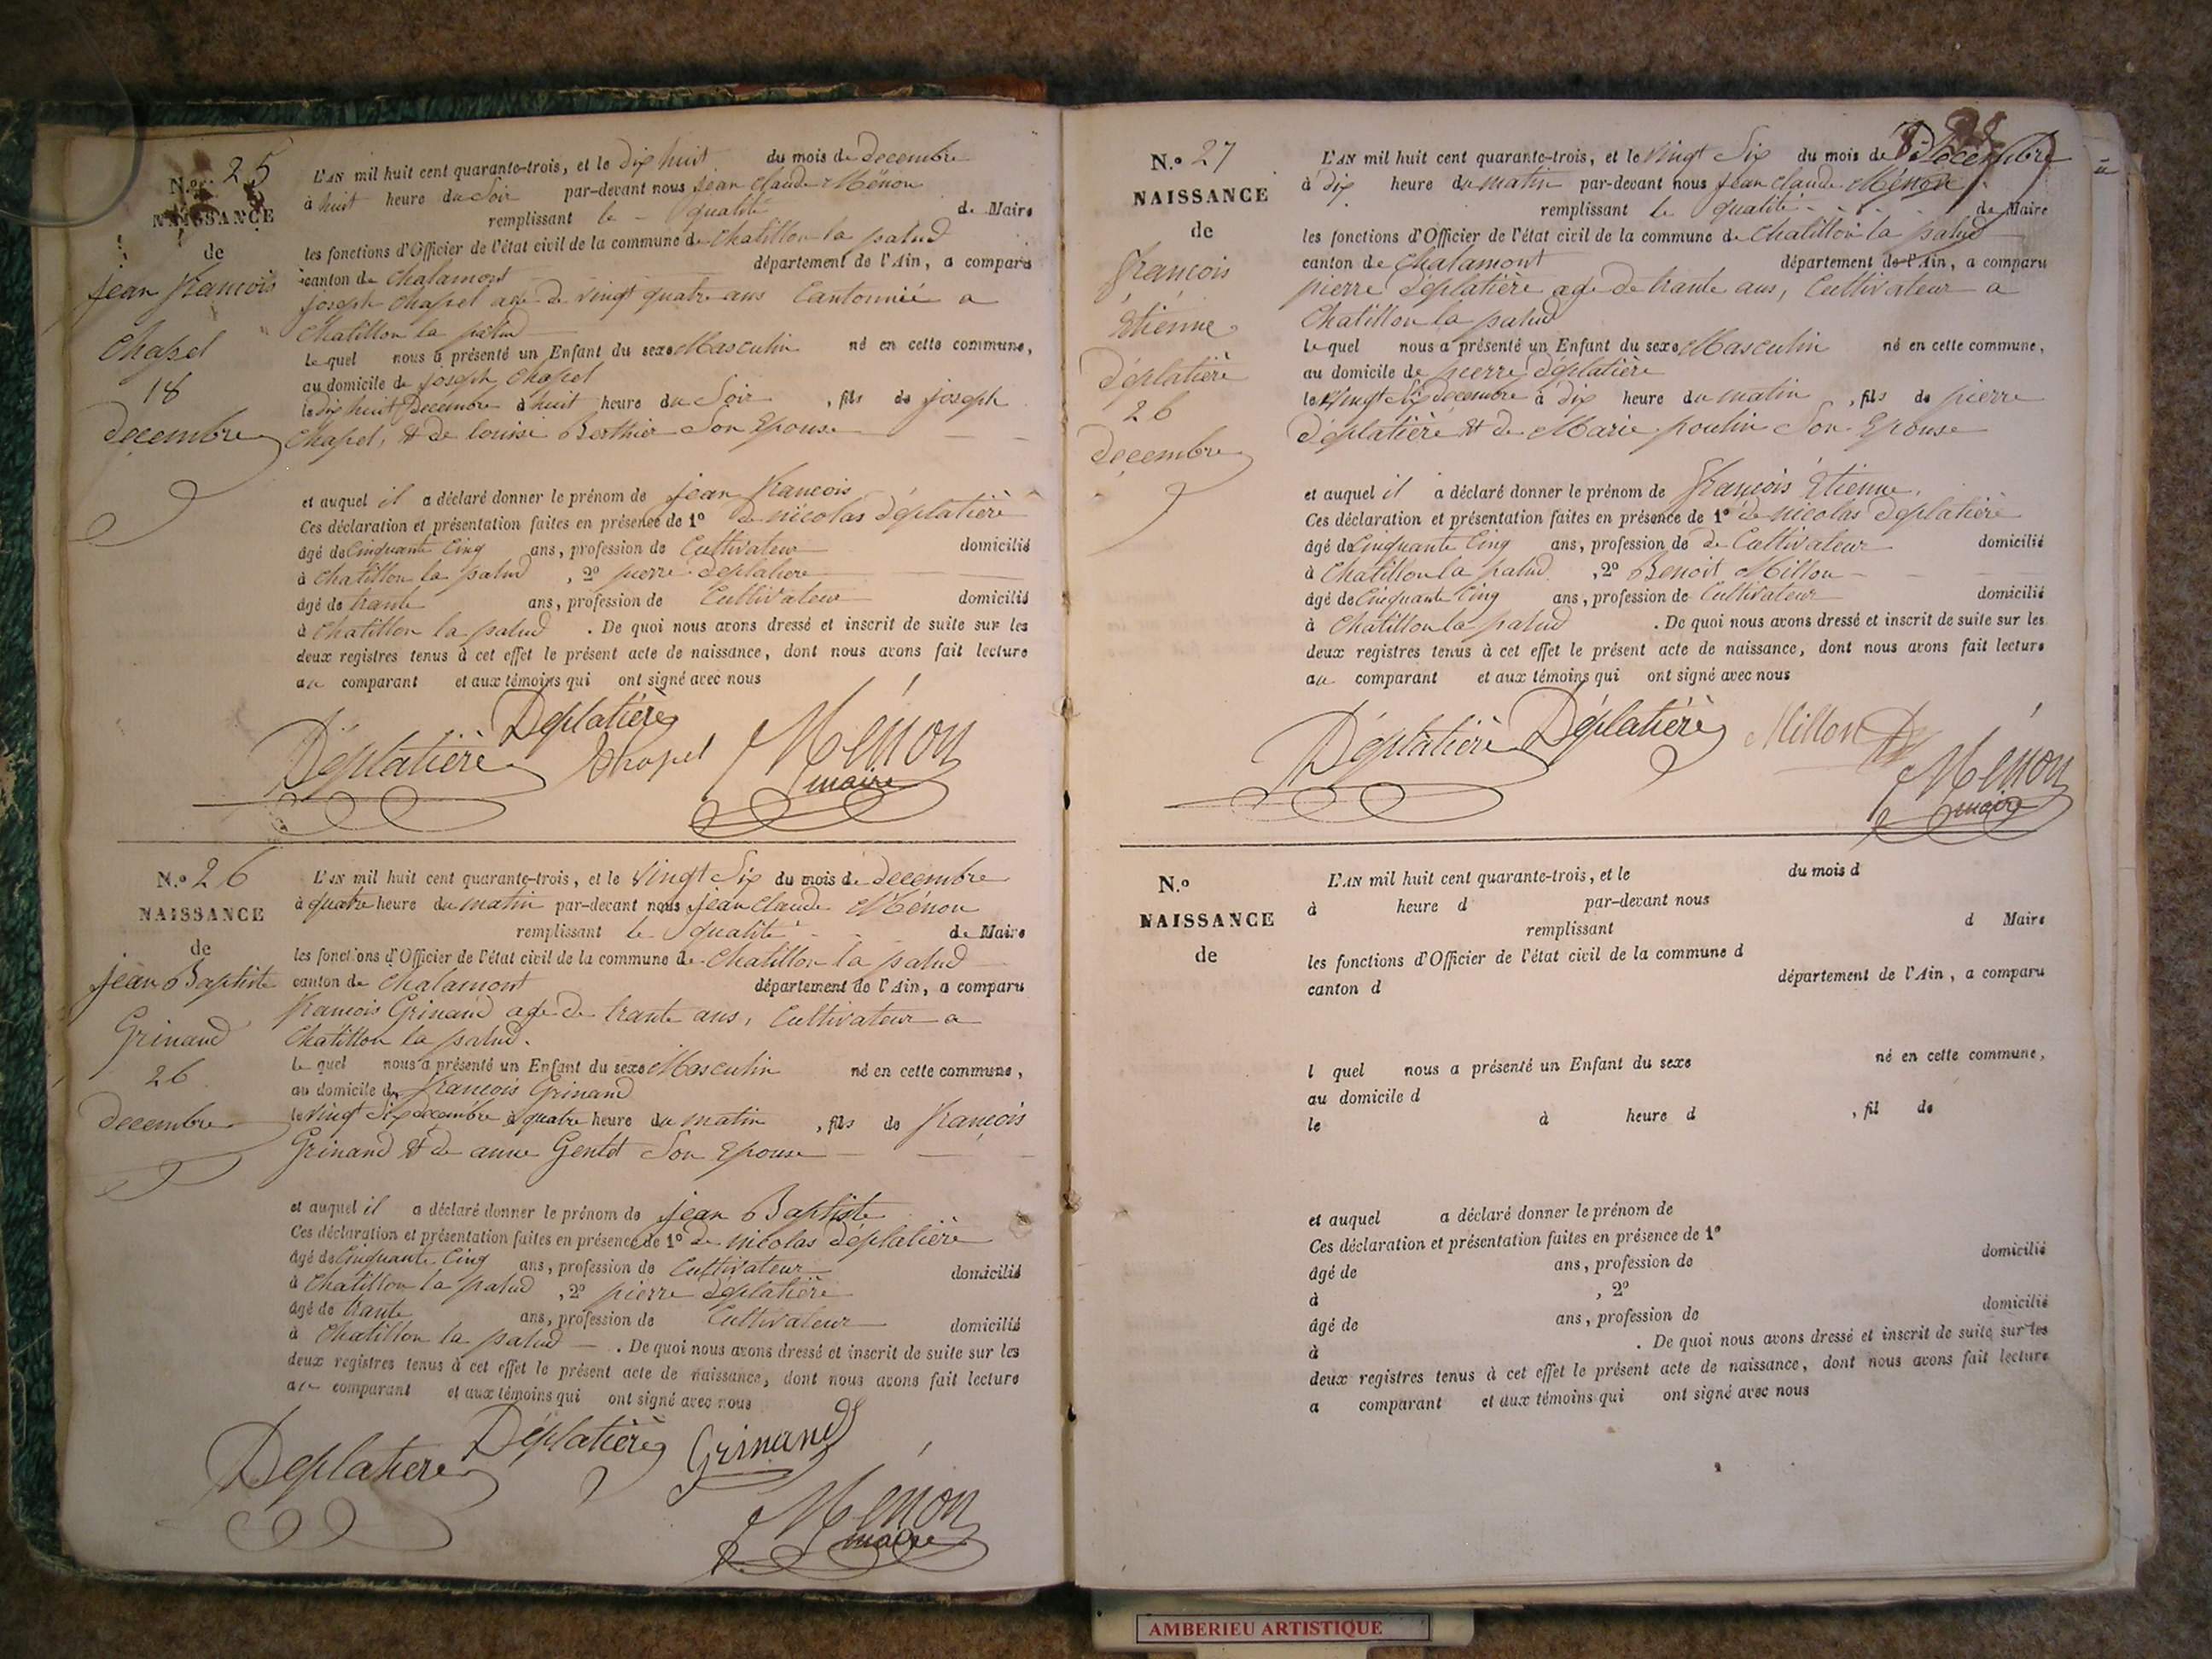 N.o 25
NAISSANCE
de
jean francois
Chapel
18
decembre
L'AN mil huit cent quarante-trois, et le dix huit du mois de decembre
à huit heure du Soir par-devant nous jean claude Ménon
remplissant le qualité de Maire
les fonctions d'Officier de l'état civil de la commune de Chatillon la palud
canton de Chalamont département de l'Ain, a comparu
joseph chapel age de vingt quatre ans Cantonnié a
Chatillon la palud
le quel nous a présenté un Enfant du sexe Masculin né en cette commune,
au domicile de joseph chapel
le dix huit Decembre à huit heure du Soir , fils de joseph
Chapel, & de louise Berthier Son Epouse
et auquel il a déclaré donner le prénom de jean francois
Ces déclaration et présentation faites en présence de 1o de nicolas déplatière
âgé de Cinquante Cinq ans, profession de Cultivateur domicilié
à Chatillon la palud , 2o pierre deplatiere
âgé de trante ans, profession de Cultivateur domicilié
à Chatillon la palud . De quoi nous avons dressé et inscrit de suite sur les
deux registres tenus à cet effet le présent acte de naissance, dont nous avons fait lecture
au comparant et aux témoins qui ont signé avec nous
Déplatière Déplatière Chapel Ménon
maire
N.o 26
NAISSANCE
de
jean Baptiste
Grinand
26
decembre
L'AN mil huit cent quarante-trois, et le vingt Six du mois de decembre
à quatre heure du matin par-devant nous jean claude Ménon
remplissant le qualité de Maire
les fonctions d'Officier de l'état civil de la commune de Chatillon la palud
canton de Chalamont département de l'Ain, a comparu
francois Grinand age de trante ans, Cultivateur a
Chatillon la palud.
le quel nous a présenté un Enfant du sexe Masculin né en cette commune,
au domicile de francois Grinand
le vingt Six decembre à quatre heure du matin , fils de françois
Grinand & de anne Gentet Son Epouse
et auquel il a déclaré donner le prénom de jean Baptiste
Ces déclaration et présentation faites en présence de 1o de nicolas déplatière
âgé de Cinquante Cinq ans, profession de Cultivateur domicilié
à Chatillon la palud , 2o pierre déplatière
âgé de trante ans, profession de Cultivateur domicilié
à Chatillon la palud . De quoi nous avons dressé et inscrit de suite sur les
deux registres tenus à cet effet le présent acte de naissance, dont nous avons fait lecture
au comparant et aux témoins qui ont signé avec nous
Deplatiere Déplatière Grinand
Ménon
maire
N.o 27
NAISSANCE
de
francois
étienne
Déplatière
26
decembre
L'AN mil huit cent quarante-trois, et le vingt Six du mois de Decembre
à dix heure du matin par-devant nous jean claude Ménon
remplissant le qualité de Maire
les fonctions d'Officier de l'état civil de la commune de Chatillon la palud
canton de Chalamont département de l'Ain, a comparu
pierre déplatière age de trante ans, Cultivateur a
Chatillon la palud
le quel nous a présenté un Enfant du sexe Masculin né en cette commune,
au domicile de pierre déplatière
le vingt Six decembre à dix heure du matin , fils de pierre
déplatière & de Marie poulin Son Epouse
et auquel il a déclaré donner le prénom de françois étienne.
Ces déclaration et présentation faites en présence de 1o de nicolas deplatière
âgé de Cinquante Cinq ans, profession de de Cultivateur domicilié
à Chatillon la palud , 2o Benoit Millon
âgé de Cinquante Cinq ans, profession de Cultivateur domicilié
à Chatillon la palud . De quoi nous avons dressé et inscrit de suite sur les
deux registres tenus à cet effet le présent acte de naissance, dont nous avons fait lecture
au comparant et aux témoins qui ont signé avec nous
Déplatière Déplatière Millon
Ménon
maire
N.o
NAISSANCE
de
L'AN mil huit cent quarante-trois, et le du mois d
à heure d par-devant nous
remplissant d Maire
les fonctions d'Officier de l'état civil de la commune d
canton d département de l'Ain, a comparu
l quel nous a présenté un Enfant du sexe né en cette commune,
au domicile d
le à heure d , fil de
et auquel a déclaré donner le prénom de
Ces déclaration et présentation faites en présence de 1o
âgé de ans, profession de domicilié
à , 2o
âgé de ans, profession de domicilié
à . De quoi nous avons dressé et inscrit de suite sur les
deux registres tenus à cet effet le présent acte de naissance, dont nous avons fait lecture
a comparant et aux témoins qui ont signé avec nous
AMBERIEU ARTISTIQUE